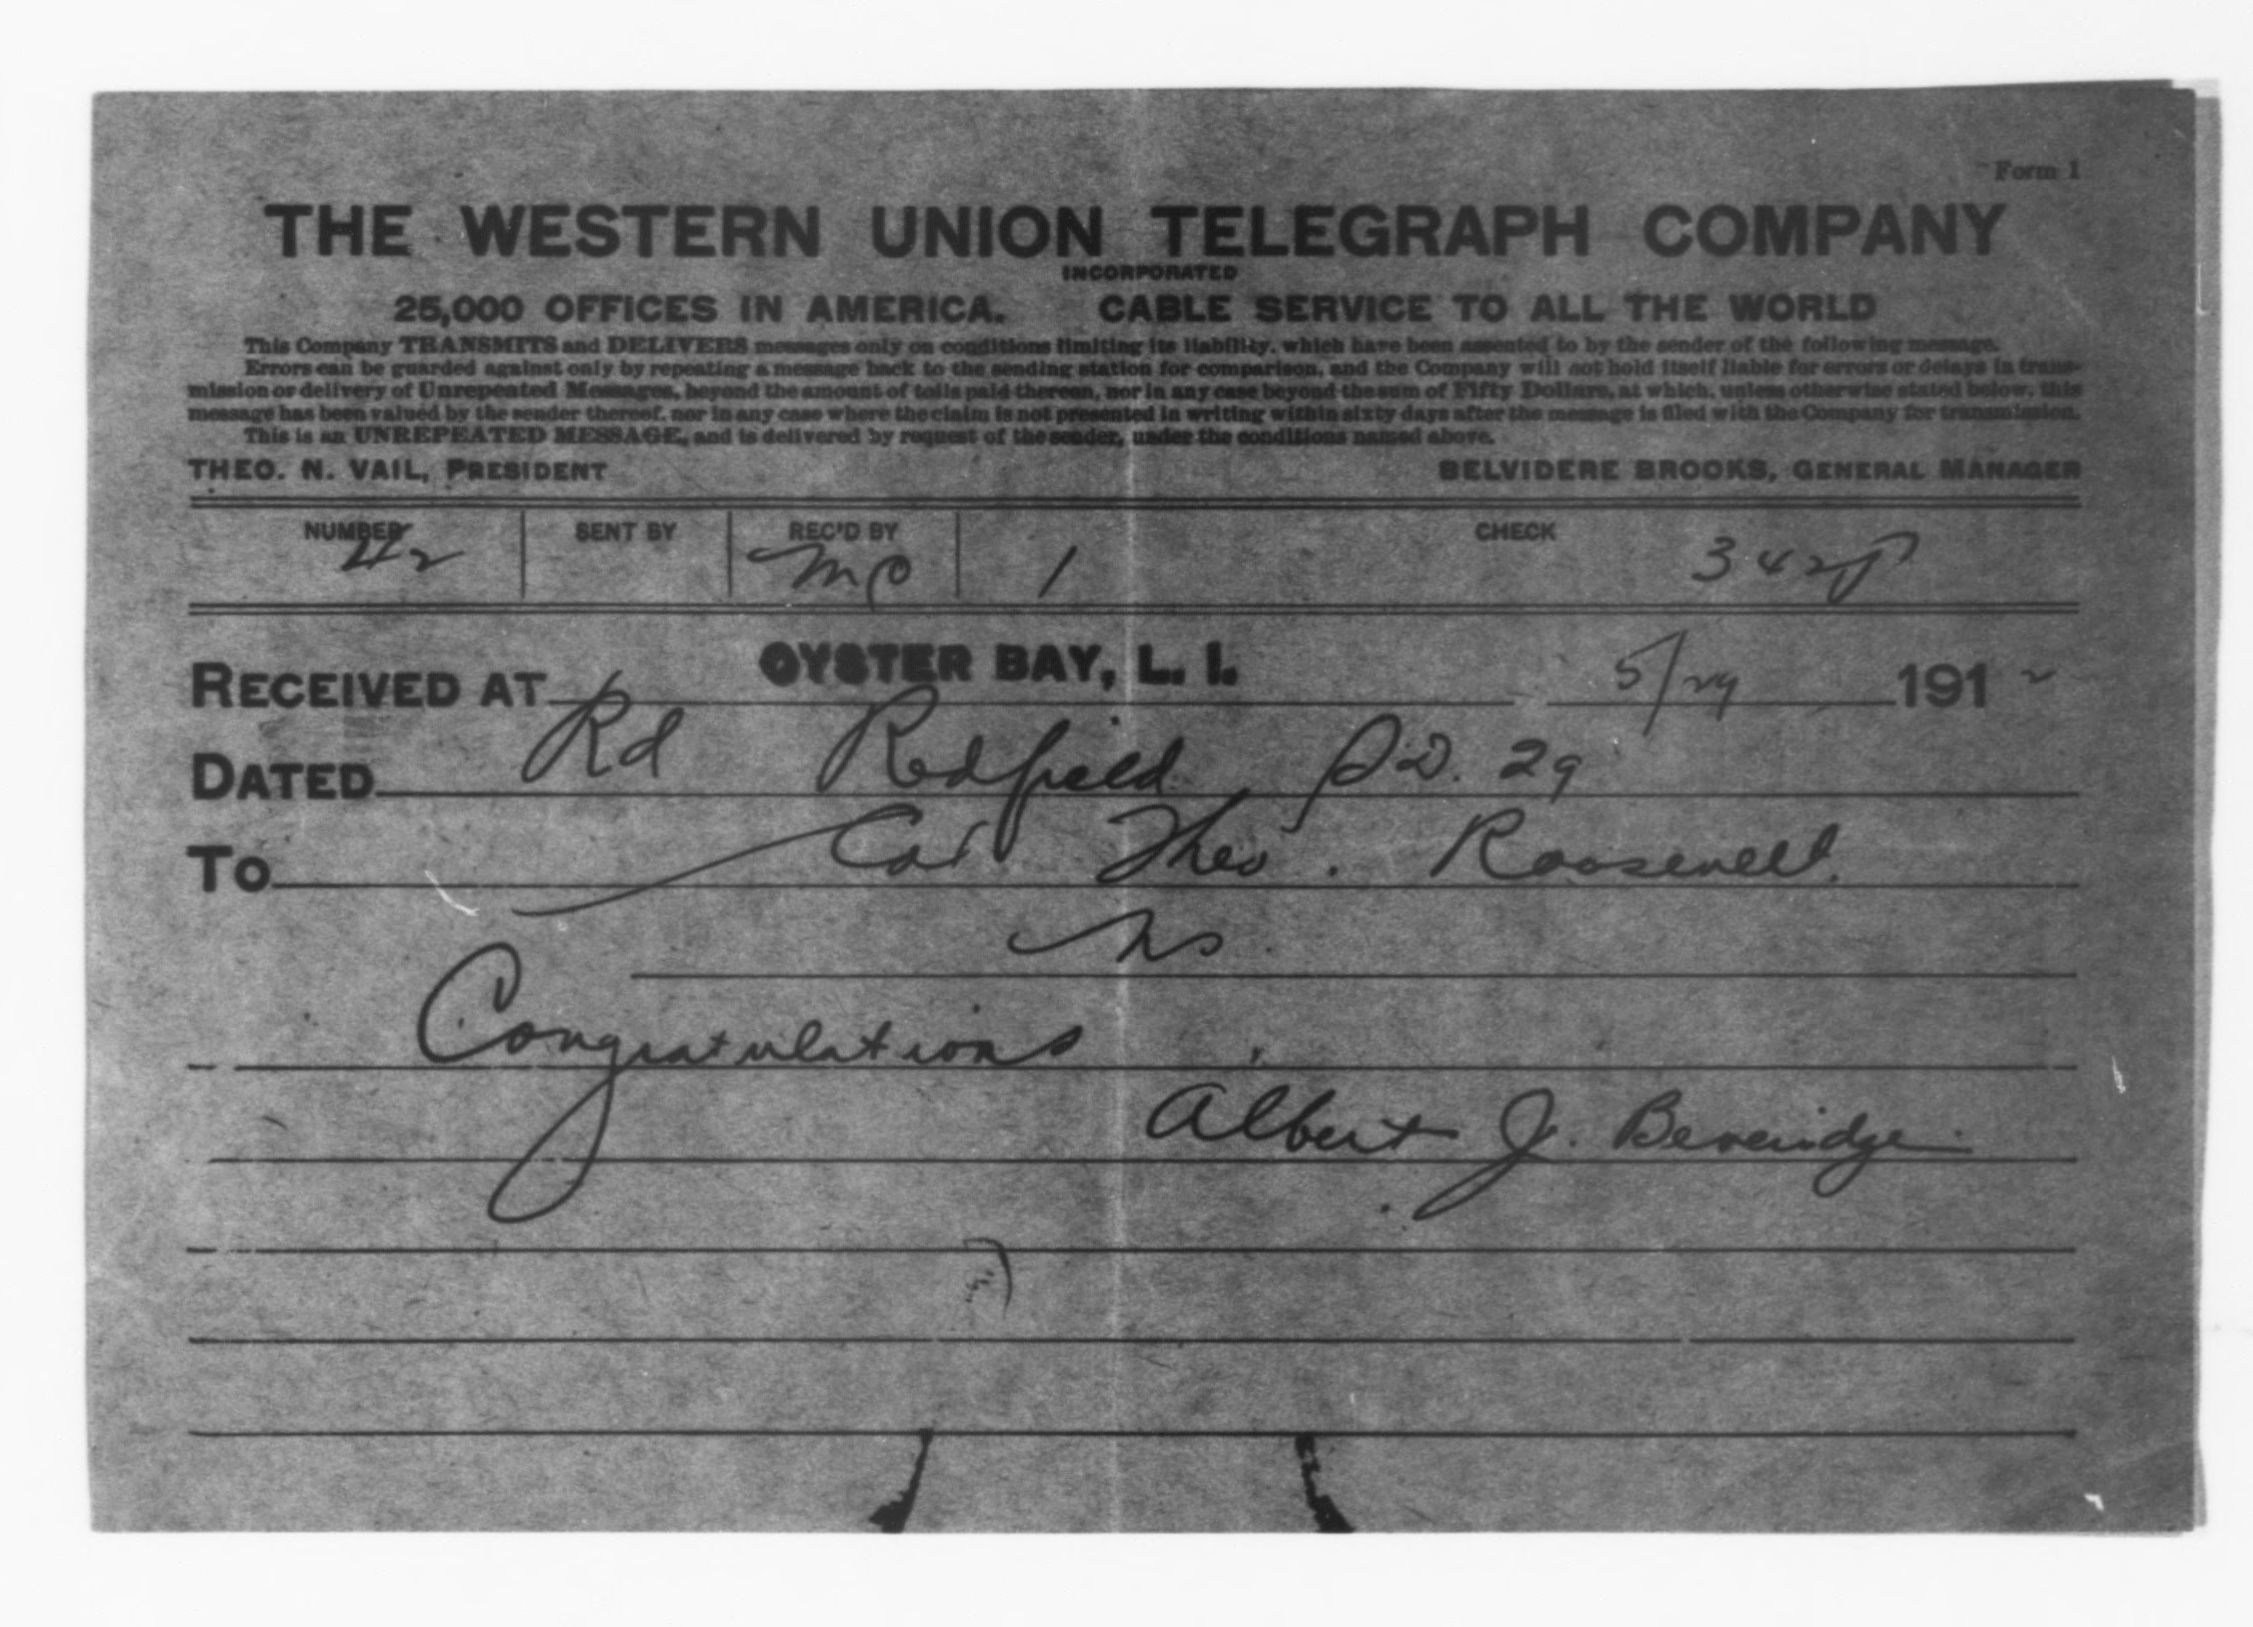 Form 1
THE WESTERN UNION TELEGRAPH COMPANY
INCORPORATED
25,000 OFFICES IN AMERICA. CABLE SERVICE TO ALL THE WORLD
This Company TRANSMITS and DELIVERS messages only on conditions limiting its liability, which have been assented to by the sender of the following message.
Errors can be guarded against only by repeating a message back to the sending station for comparison, and the Company will not hold itself liable for errors or delays in trans-
mission or delivery of Unrepeated Messages, beyond the amount of tolls paid thereon, nor in any case beyond the sum of Fifty Dollars, at which, unless otherwise stated below, this
message has been valued by the sender thereof, nor in any case where the claim is not presented in writing within sixty days after the message is filed with the Company for transmission.
This is an UNREPEATED MESSAGE, and is delivered by request of the sender, under the conditions named above.
THEO. N. VAIL, PRESIDENT BELVIDERE BROOKS, GENERAL MANAGER
NUMBER SENT BY REC'D BY CHECK
42 1
RECEIVED AT OYSTER BAY, L. I. 5/29 1912
DATED Rd Redfield S.D. 29
To Col Theo. Roosevelt.
Congratulations.
Albert J. Beveridge